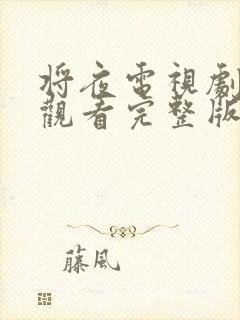 將夜電視劇
觀看完整版
藤風